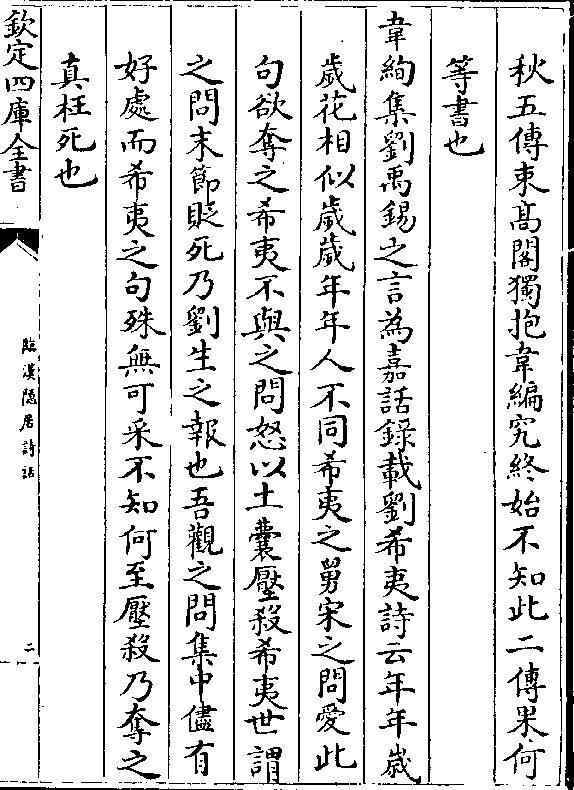 秋五傳束髙閣獨抱韋編究終始不知此二傳果何
等書也
韋絢集劉禹錫之言為嘉話録載劉希夷詩云年年歲
歲花相似歲歲年年人不同希夷之舅宋之問愛此
句欲奪之希夷不與之問怒以土囊壓殺希夷世謂
之問末節貶死乃劉生之報也吾觀之問集中儘有
好處而希夷之句殊無可采不知何至壓殺乃奪之
真枉死也
欽定四庫全書
臨漢隱居詩話
二